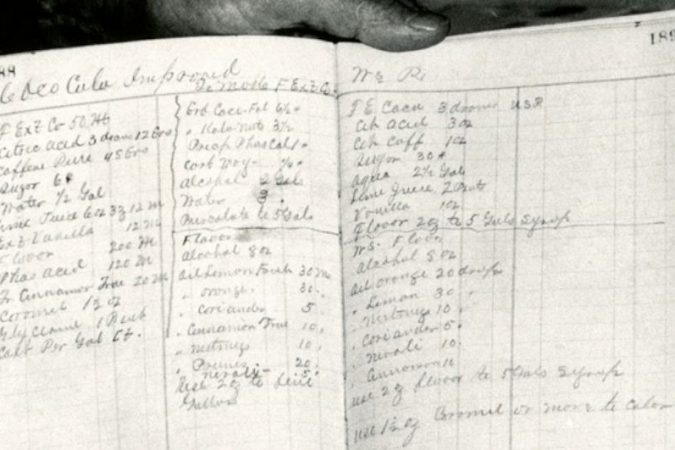 88
Coco Cola Improved
F Ext Co
Citric acid 3 12
Caffeine Pure
Sugar 6#
Water 1/2 Gal
Lime Juice 6 oz
Ext Vanilla 12 M
Flavor 200 M
Phos acid 120 M
Cinnamon True 20 M
Caromel 1/2 oz
Glycerine 1
Salt Per Gal
To Make F Ext Co
Grd Coca
" Kola Nuts 3 1/2
Precip Phos Cal
Alcohol 2 Gals
Water 3 "
Percolate to 5 Gals
Flavor
Alcohol 8 oz
Oil Lemon 30 M
" Orange 30 "
" Coriander 5 "
" Cinnamon True 10 "
" Nutmegs 10 "
20 "
" 5 "
Use 2 oz to
Gallons
189
F E Coca 3 drams USP
Cit Acid 3 oz
Cit Caff 1 oz
Sugar 30 #
Aqua 2 1/2 Gals
Lime Juice 2 Pints
Vanilla 1 oz
Flavor 2 oz to 5 Gals Syrup
Flavor
Alcohol 8 oz
Oil Orange 20 drops
" Lemon 30 "
" Nutmegs 10 "
" Coriander 5 "
" Niroli 10 "
" Cinnamon 10
use 2 oz Flavor to 5 Gals Syrup
use 1/2 oz Caromel or more to color